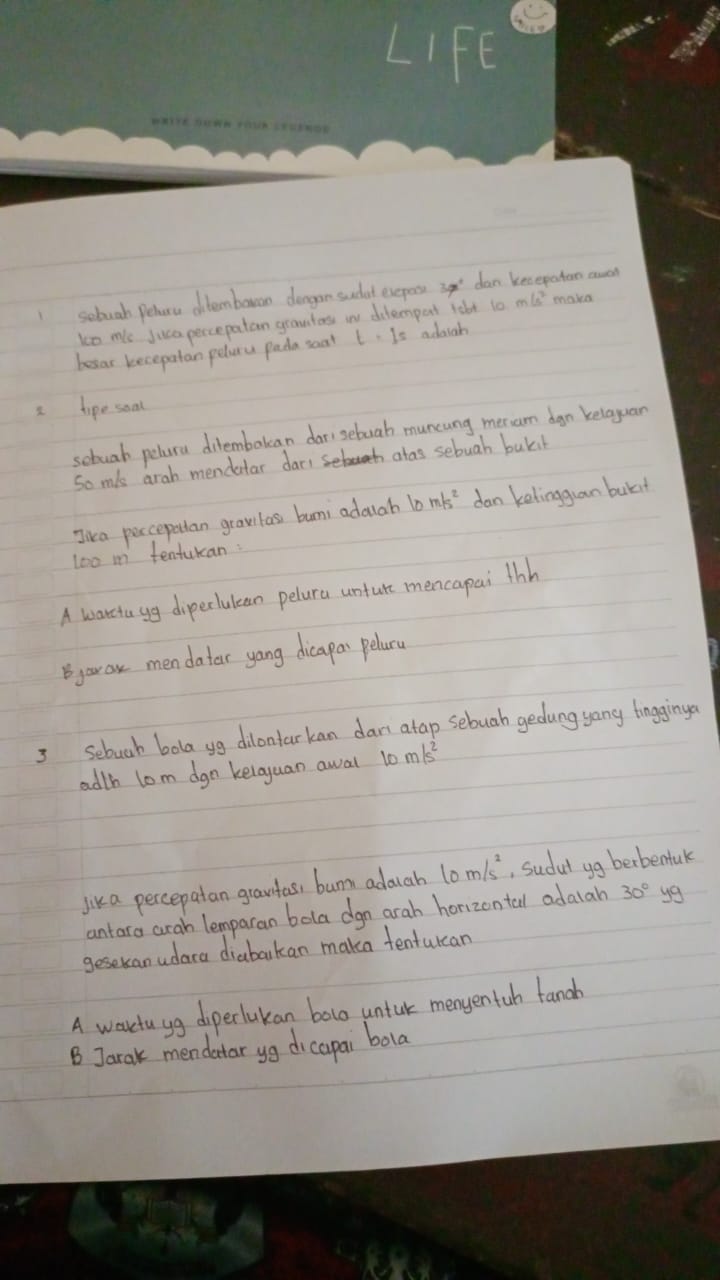 LIFE
SMILED
WRITE DOWN YOUR LEGENDS
1 sebuah peluru ditembakan dengan sudut elepasi 30° dan kecepatan awal
100 m/s Jika percepatan gravitasi ditempat tsbt 10 m/s² maka
besar kecepatan peluru pada saat t = 1s adalah
2 tipe soal
sebuah peluru ditembakan dari sebuah muncung meriam dgn kelajuan
50 m/s arah mendatar dari sebuah atas sebuah bukit
Jika percepatan gravitasi bumi adalah 10 m/s² dan ketinggian bukit
100 m tentukan :
A waktu yg diperlukan peluru untuk mencapai thh
B jarak mendatar yang dicapai peluru
3 Sebuah bola yg dilontarkan dari atap sebuah gedung yang tingginya
adlh 10 m dgn kelajuan awal 10 m/s²
jika percepatan gravitasi bumi adalah 10 m/s², sudut yg berbentuk
antara arah lemparan bola dgn arah horizontal adalah 30° yg
gesekan udara diabaikan maka tentukan
A waktu yg diperlukan bola untuk menyentuh tanah
B Jarak mendatar yg dicapai bola